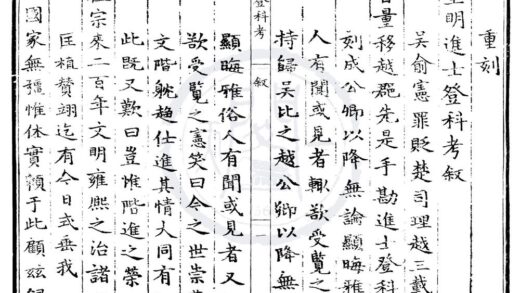 重刻
皇明進士登科考叙
吴俞憲罪貶楚司理越三載
量移越郡先是手勘進士登科
刻成公卿以降無論顯晦雅
人有聞或見者輒欲受覽之
持歸吴比之越公卿以降無
登科考 叙 一
顯晦雅俗人有聞或見者又
欲受覽之憲笑曰今之世崇
文階躭趨仕進其情大同有
此既又歎曰豈惟階進之榮
祖宗來二百年文明雍熙之治諸
匡植贊翊迄有今日式垂我
國家無疆惟休實頼于此顧兹